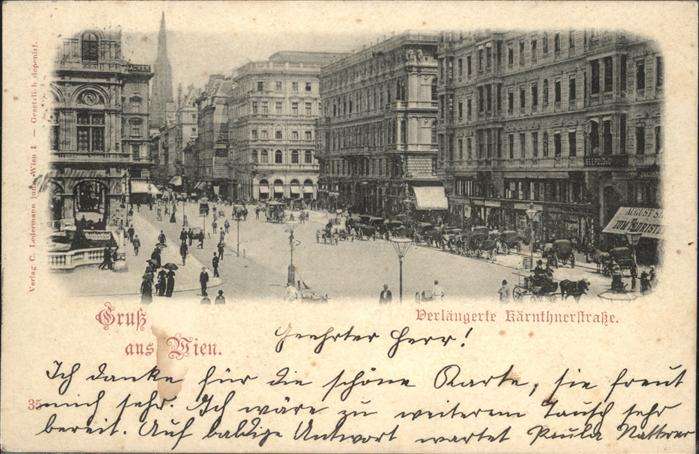 Verlag C. Ledermann jun. Wien I — Gesetzlich deponirt.
LEOPOLD
AUGUST S
ZUM
Gruß
aus Wien.
Verlängerte Kärnthnerstraße.
Geehrter Herr!
Ich danke für die schöne Karte, sie freut
mich sehr. Ich wäre zu weiterem Tausch sehr
bereit. Auf baldige Antwort wartet Paula
35